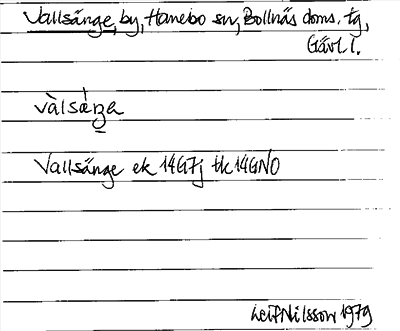 Vallsänge, by, Hanebo sn, Bollnäs doms. tg,
Gävl l.
vàlsǽŋa
Vallsänge ek 14G7j tk 14GNO
Leif Nilsson 1979